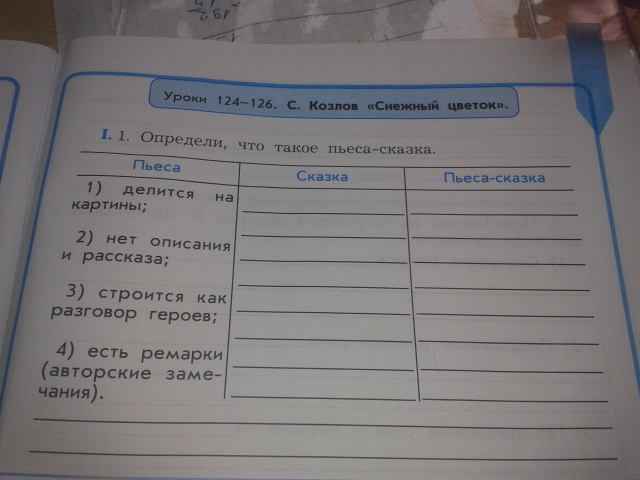 Уроки 124–126. С. Козлов «Снежный цветок».
I. 1. Определи, что такое пьеса-сказка.
Пьеса
Сказка
Пьеса-сказка
1) делится на
картины;
2) нет описания
и рассказа;
3) строится как
разговор героев;
4) есть ремарки
(авторские заме-
чания).